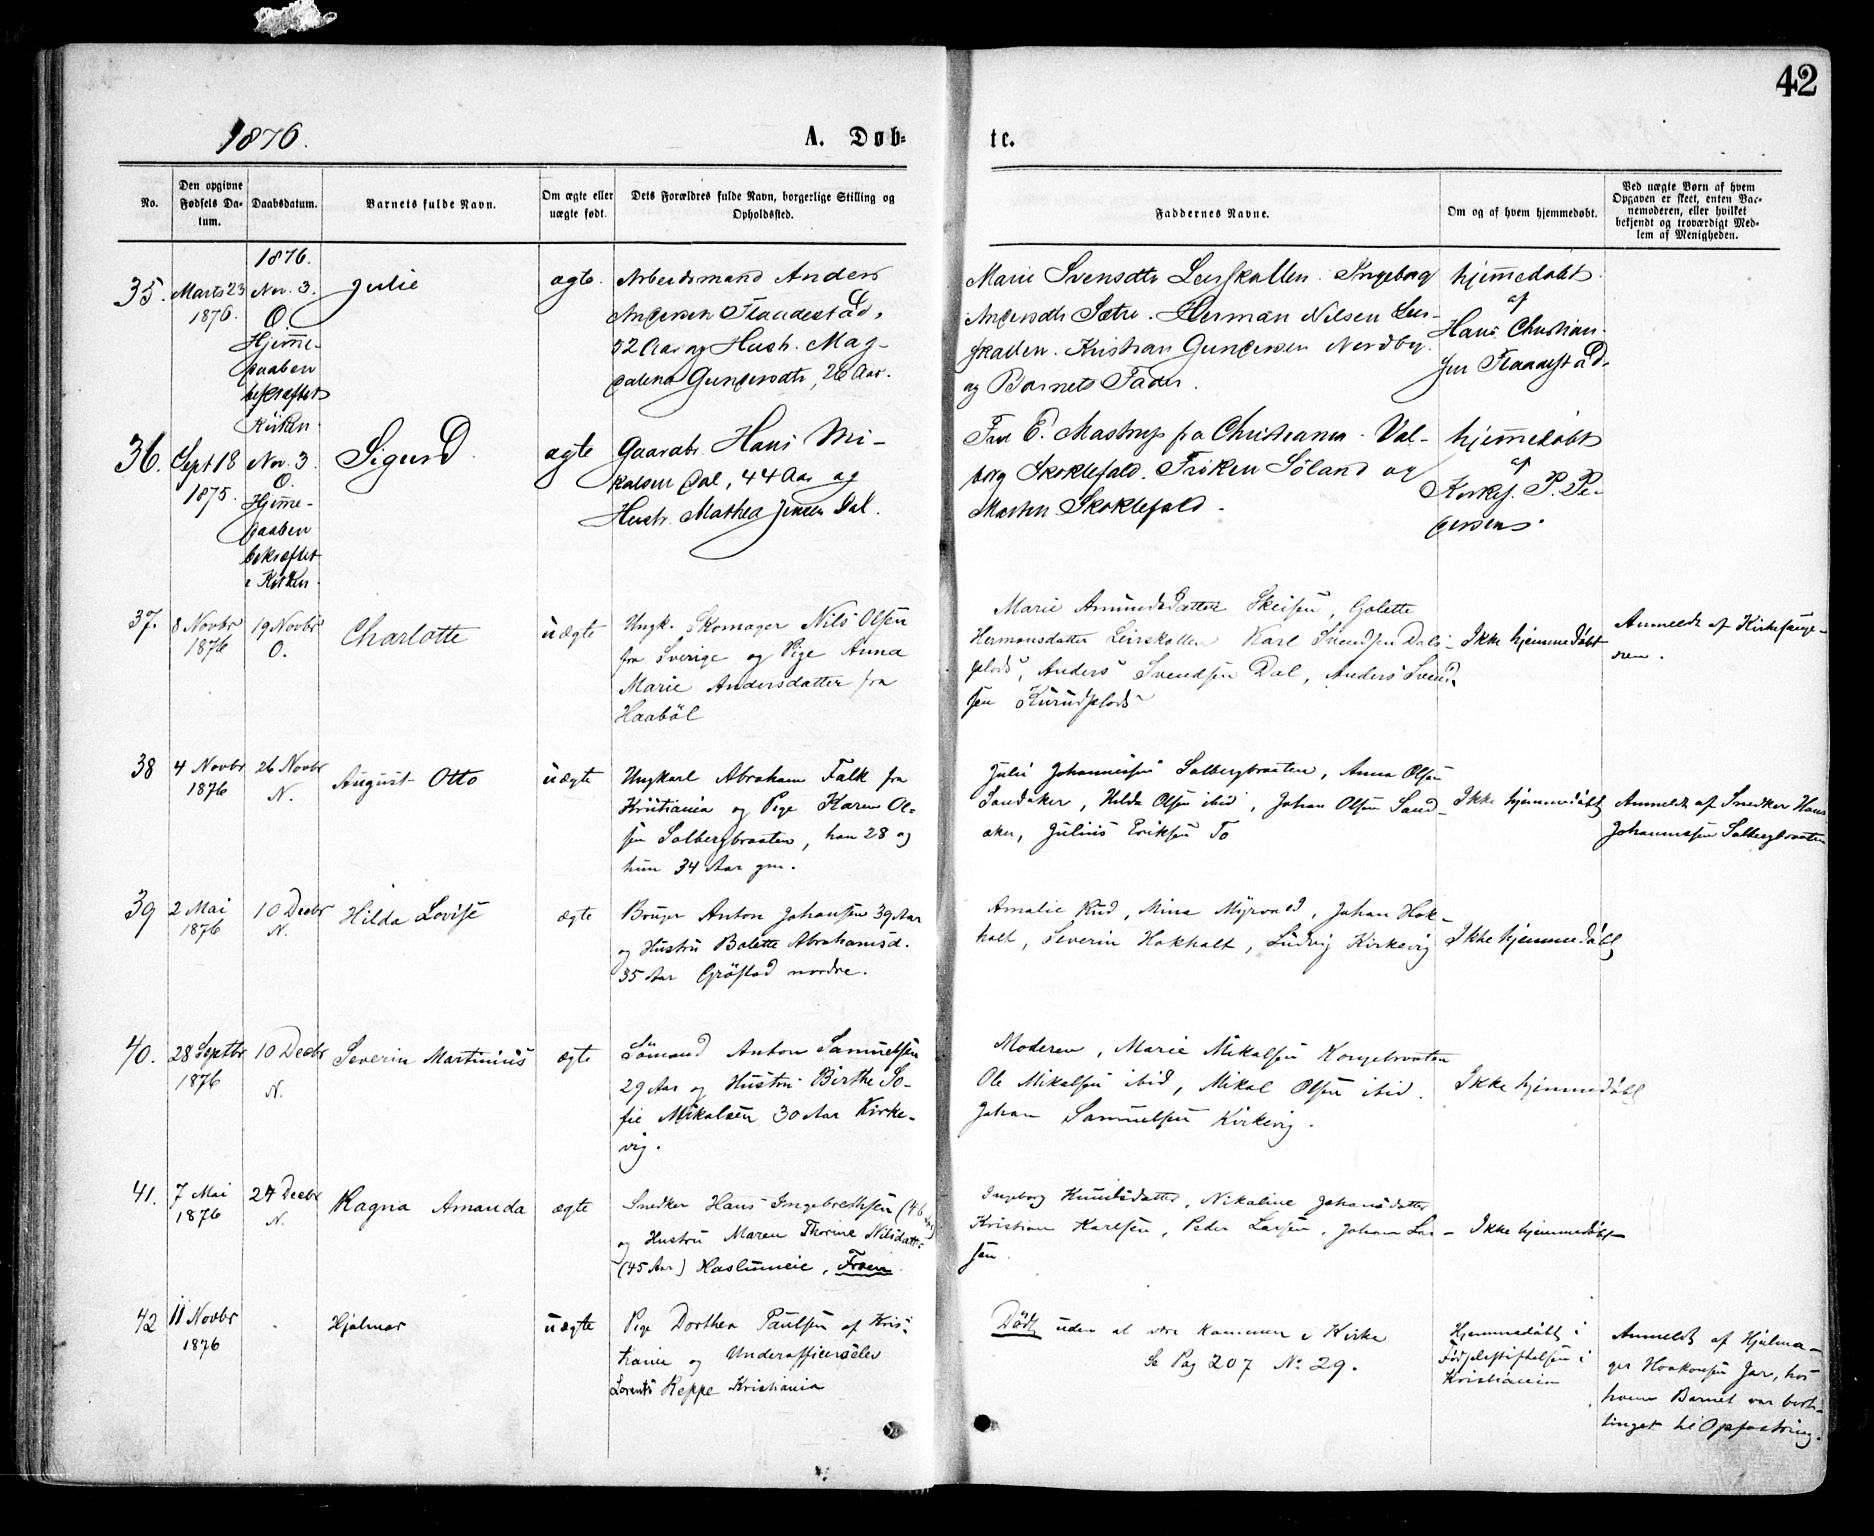 42
1876.
A. Døb-
te.
No.
Den opgivne Fødsels Da-tum.
Daabsdatum.
Barnets fulde Navn.
Om ægte eller uægte født.
Dets Forældres fulde Navn, borgerlige Stilling og Opholdssted.
Faddernes Navne.
Om og af hvem hjemmedøbt.
Ved uægte Børn af hvem Opgaven er skeet, enten Bar-nemoderen, eller hvilket bekjendt og troværdigt Med-lem af Menigheden.
35.
Marts 23
1876.
1876.
Nov. 3.
O
Hjemme-
daaben
bekræftet
Kirken.
Julie
ægte.
Arbeidsmand Anders
Andersen Flaadestad,
52 Aar og Hustr. Mag-
dalena Gundersdtr, 26 Aar.
Marie Svensdtr Leirskallen. Ingeborg
Andersdtr Sætre. Herman Nilsen Leir-
skallen. Kristian Gundersen Nordby.
og Barnets Fader.
hjemmedøbt
af
Hans Christian-
sen Flaadestad.
36.
Sept 18
1875.
Nov. 3.
O.
Hjemme-
daaben
bekræftet
i Kirken.
Sigurd
ægte
Gaardbr. Hans Mi-
kalsen Dal, 44 Aar og
Hustr. Mathea Jensen Dal.
Fru E. Mastrup fra Christiania. Val-
borg Skoklefald. Frøken Søland og
Morten Skoklefald.
hjemmedøbt
af
Kirkes. P. Pe-
dersen.
37.
8 Novbr
1876
19 Novbr
O.
Charlotte
uægte
Ungk. Skomager Nils Olsen
fra Sverige og Pige Anna
Marie Andersdatter fra
Haabøl
Marie Amundsdatter Skeisen, Golette
Hermansdatter Leirskallen Karl Svendsen Dals-
plads, Anders Svendsen Dal, Anders Svend-
sen Kurudplads
Ikke hjemmedøbt
Anmeldt af Kirkesange-
ren.
38
4 Novbr
1876
26 Novbr
N.
August Otto
uægte
Ungkarl Abraham Falk fra
Kristiania og Pige Karen Ol-
sen Solbergbraaten, han 28 og
hun 34 Aar gm.
Julie Johannessen Solbergbraaten, Anna Olsen
Sandaker, Hilda Olsen ibid, Johan Olsen Sand-
aker, Julius Eriksen To
Ikke hjemmedøbt
Anmeldt af Snedker Hans
Johannessen Solbergbraaten
39
2 Mai
1876
10 Decbr
N.
Hilda Lovise
ægte
Bruger Anton Johansen 39 Aar
og Hustru Bolette Abrahamsd.
35 Aar Grøstad nordre.
Amalie Rud, Mina Myrvold, Johan Hok-
holt, Severin Hokholt, Ludvig Kirkevig
Ikke hjemmedøbt
40.
28 Septbr
1876
10 Decbr
N.
Severin Martinius
ægte
Sömand Anton Samuelsen
29 Aar og Hustru Birthe So-
fie Mikalsen 30 Aar Kirke-
vig.
Moderen, Marie Mikalsen Kongebraaten
Ole Mikalsen ibid, Mikal Olsen ibid.
Johan Samuelsen Kirkevig.
Ikke hjemmedøbt
41.
7 Mai
1876
27 Decbr
N.
Ragna Amanda
ægte
Snedker Hans Ingebrethsen (46 Aar)
og Hustru Maren Thorine Nilsdatter
(45 Aar) Haslumeie, Froen.
Ingeborg Knudsdatter, Nikoline Johansdatter
Kristian Karlsen, Peder Larsen, Johan Lar-
sen.
Ikke hjemmedøbt
42
11 Novbr
1876
Hjalmar
uægte
Pige Dorthea Paulsen af Kris-
tiania og Underofficerselev
Lorents Reppe Kristiania
Död uden at være kommen i Kirke
Se Pag 207 No 29.
Hjemmedøbt i
Fødselsstiftelsen i
Kristiania
Anmeldt af Hjulma-
ger Haakonsen Jar, hos
hvem Barnet var bort-
tinget til Opfostring.